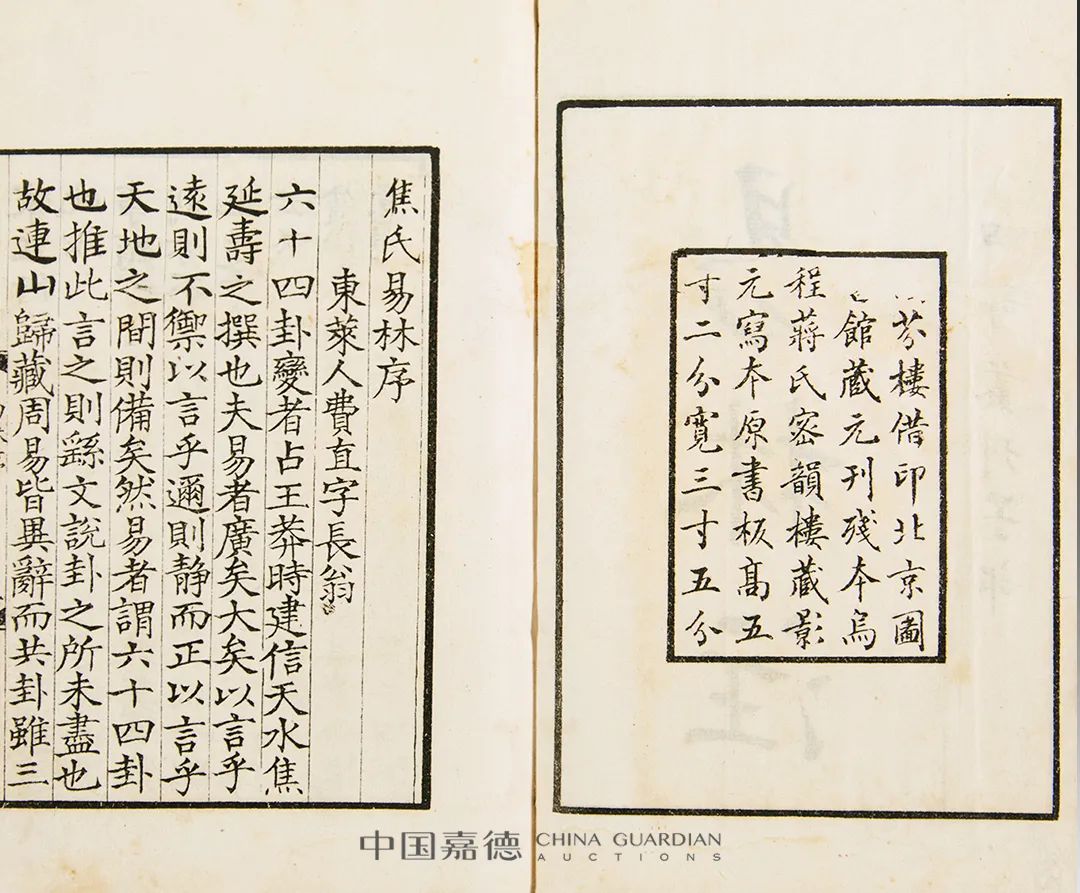 芬樓借印北京圖
館藏元刊殘本烏
程蔣氏密韻樓藏影
元寫本原書板高五
寸二分寬三寸五分
焦氏易林序
東萊人費直字長翁
六十四卦變者占王莽時建信天水焦
延壽之撰也夫易者廣矣大矣以言乎
遠則不禦以言乎邇則静而正以言乎
天地之間則備矣然易者謂六十四卦
也推此言之則繇文說卦之所未盡也
故連山歸藏周易皆異辭而共卦雖三
中国嘉德
CHINA GUARDIAN
AUCTIONS